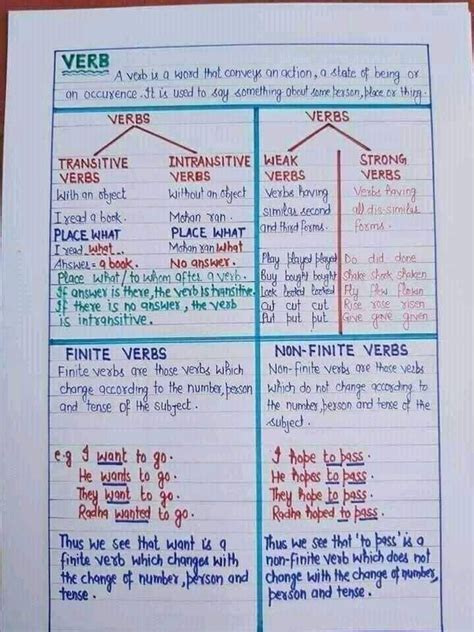 VERB
A verb is a word that conveys an action, a state of being or
an occurence. It is used to say something about some person, place or thing.
VERBS
TRANSITIVE VERBS
With an object
I read a book.
PLACE WHAT
I read what...
Answer = a book.
INTRANSITIVE VERBS
Without an object
Mohan ran.
PLACE WHAT
Mohan ran what
No answer.
Place what/to whom after a verb.
If answer is there, the verb is transitive.
If there is no answer, the verb
is intransitive.
VERBS
WEAK VERBS
Verbs having
similar second
and third forms.
Play played played
Buy bought bought
Look looked looked
Cut cut cut
Put put put
STRONG VERBS
Verbs having
all dis-similar
forms.
Do did done
Shake shook shaken
Fly flew flown
Rise rose risen
Give gave given
FINITE VERBS
Finite verbs are those verbs which
change according to the number, person
and tense of the subject.
e.g I want to go.
He wants to go.
They want to go.
Radha wanted to go.
Thus we see that want is a
finite verb which changes with
the change of number, person and
tense.
NON-FINITE VERBS
Non-finite verbs are those verbs
which do not change according to
the number, person and tense of the
subject.
I hope to pass.
He hopes to pass.
They hope to pass.
Radha hoped to pass.
Thus we see that 'to pass' is a
non-finite verb which does not
change with the change of number,
person and tense.